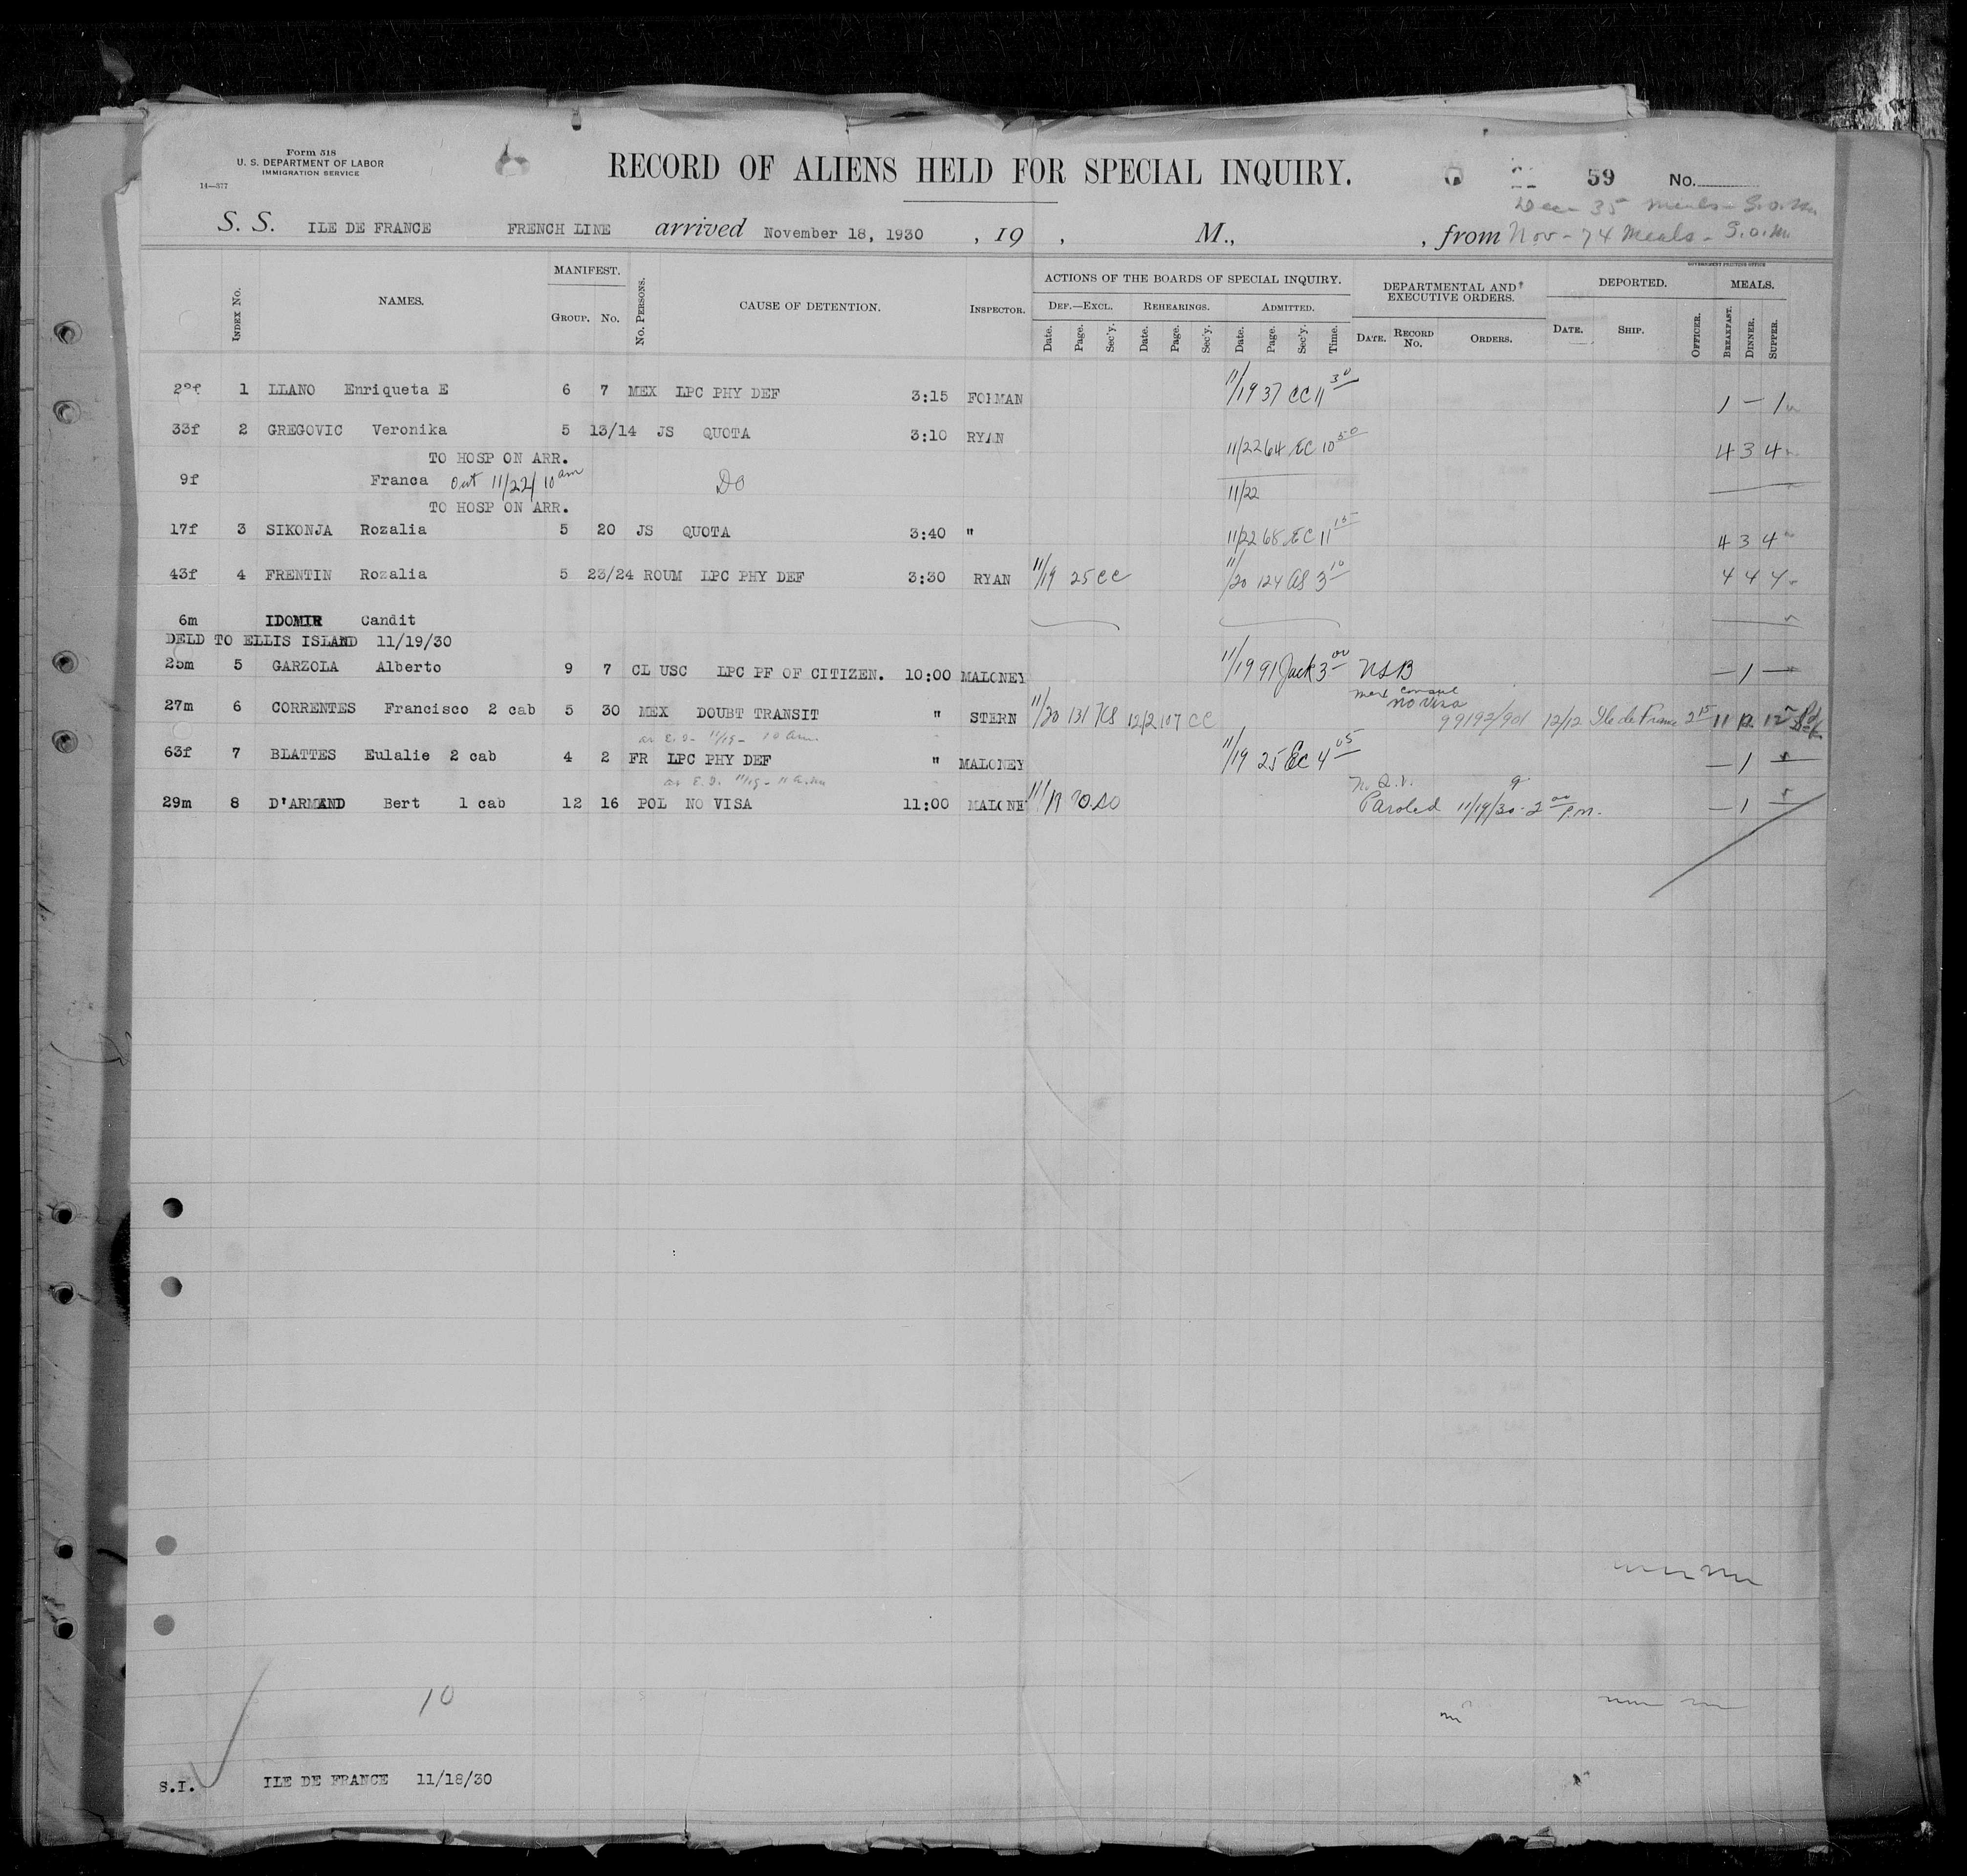 Form 518
U. S. DEPARTMENT OF LABOR
IMMIGRATION SERVICE
14—377
RECORD OF ALIENS HELD FOR SPECIAL INQUIRY.
59 No.
Dec - 35 meals - S.O.M.
S. S. ILE DE FRANCE FRENCH LINE arrived November 18, 1930 , 19 , M., , from Nov - 74 Meals - S.O.M.
GOVERNMENT PRINTING OFFICE
INDEX No. NAMES. MANIFEST. GROUP. No. No. PERSONS. CAUSE OF DETENTION. INSPECTOR. ACTIONS OF THE BOARDS OF SPECIAL INQUIRY. DEPARTMENTAL AND EXECUTIVE ORDERS. DEPORTED. MEALS.
DEF.—EXCL. REHEARINGS. ADMITTED.
Date. Page. Sec'y. Date. Page. Sec'y. Date. Page. Sec'y. Time. DATE. RECORD No. ORDERS. DATE. SHIP. OFFICER. BREAKFAST. DINNER. SUPPER.
1 LLANO Enriqueta E 6 7 MEX LPC PHY DEF 3:15 FORMAN 11/19 37 CC 11 30 1 — 1
33f 2 GREGOVIC Veronika 5 13/14 JS QUOTA 3:10 RYAN 11/22 64 EC 10 50 4 3 4
TO HOSP ON ARR.
9f Franca Out 11/22/ 10 am Do 11/22
TO HOSP ON ARR.
17f 3 SIKONJA Rozalia 5 20 JS QUOTA 3:40 " 11/22 68 EC 11 15 4 3 4
43f 4 FRENTIN Rozalia 5 23/24 ROUM LPC PHY DEF 3:30 RYAN 11/19 25 CC 11/20 124 AS 3 10 4 4 4
6m IDOMIR Candit
DELD TO ELLIS ISLAND 11/19/30
25m 5 GARZOLA Alberto 9 7 CL USC LPC PF OF CITIZEN. 10:00 MALONEY 11/19 91 Jack 3 00 USB — 1 —
Mex Consul
No Visa
27m 6 CORRENTES Francisco 2 cab 5 30 MEX DOUBT TRANSIT " STERN 11/20 131 KS 12/2 107 CC 99192/901 12/12 Ile de France 2 15 11 12 12
ar E.I. 11/19 - 10 am.
63f 7 BLATTES Eulalie 2 cab 4 2 FR LPC PHY DEF " MALONEY 11/19 25 EC 4 05 — 1 —
ar E.I. 11/19 - 11 a.m
29m 8 D'ARMAND Bert 1 cab 12 16 POL NO VISA 11:00 MALONEY Paroled 11/19/30 - 2 00 P.M. — 1 —
10
S.I. ILE DE FRANCE 11/18/30